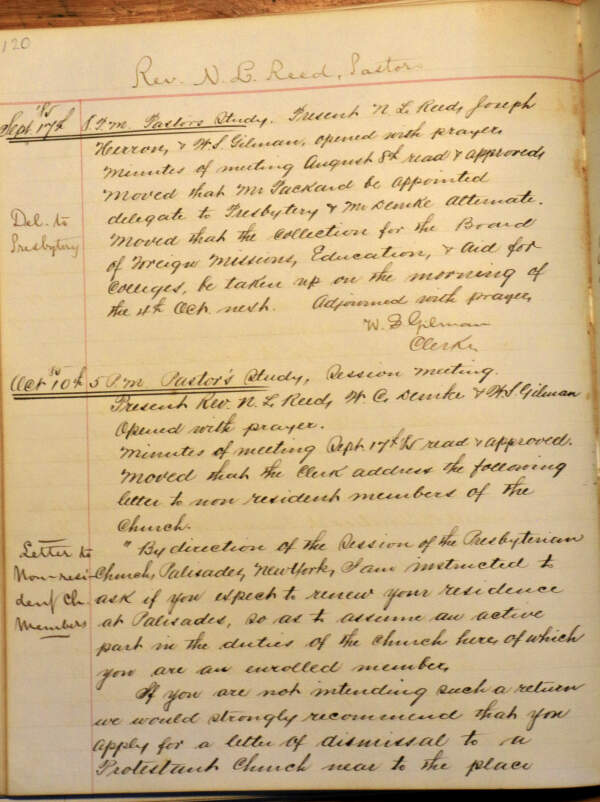 120
Rev. N. L. Reed, Pastor
'85
Sept. 17th 8 P.M. Pastor's Study. Present N. L. Reed, Joseph
Herron, & W. S. Gilman, opened with prayer.
Minutes of meeting August 8th read & approved.
Moved that Mr Packard be appointed
Del. to delegate to Presbytery & Mr Demke Alternate.
Presbytery Moved that the Collection for the Board
of Foreign Missions, Education, & Aid for
Colleges, be taken up on the morning of
the 4th Oct. next. Adjourned with prayer.
W. S. Gilman
Clerk
'85
Oct 10th 5 P.M. Pastor's Study, Session meeting.
Present Rev. N. L. Reed, W. C. Demke & W. S. Gilman
Opened with prayer.
Minutes of meeting Sept 17th 85 read & approved.
Moved that the Clerk address the following
letter to non resident members of the
Church.
Letter to " By direction of the Session of the Presbyterian
Non-resi- Church, Palisades, New York, I am instructed to
dent Ch. ask if you expect to renew your residence
Members at Palisades, so as to assume an active
part in the duties of the Church here, of which
you are an enrolled member.
If you are not intending such a return
we would strongly recommend that you
apply for a letter of dismissal to a
Protestant Church near to the place